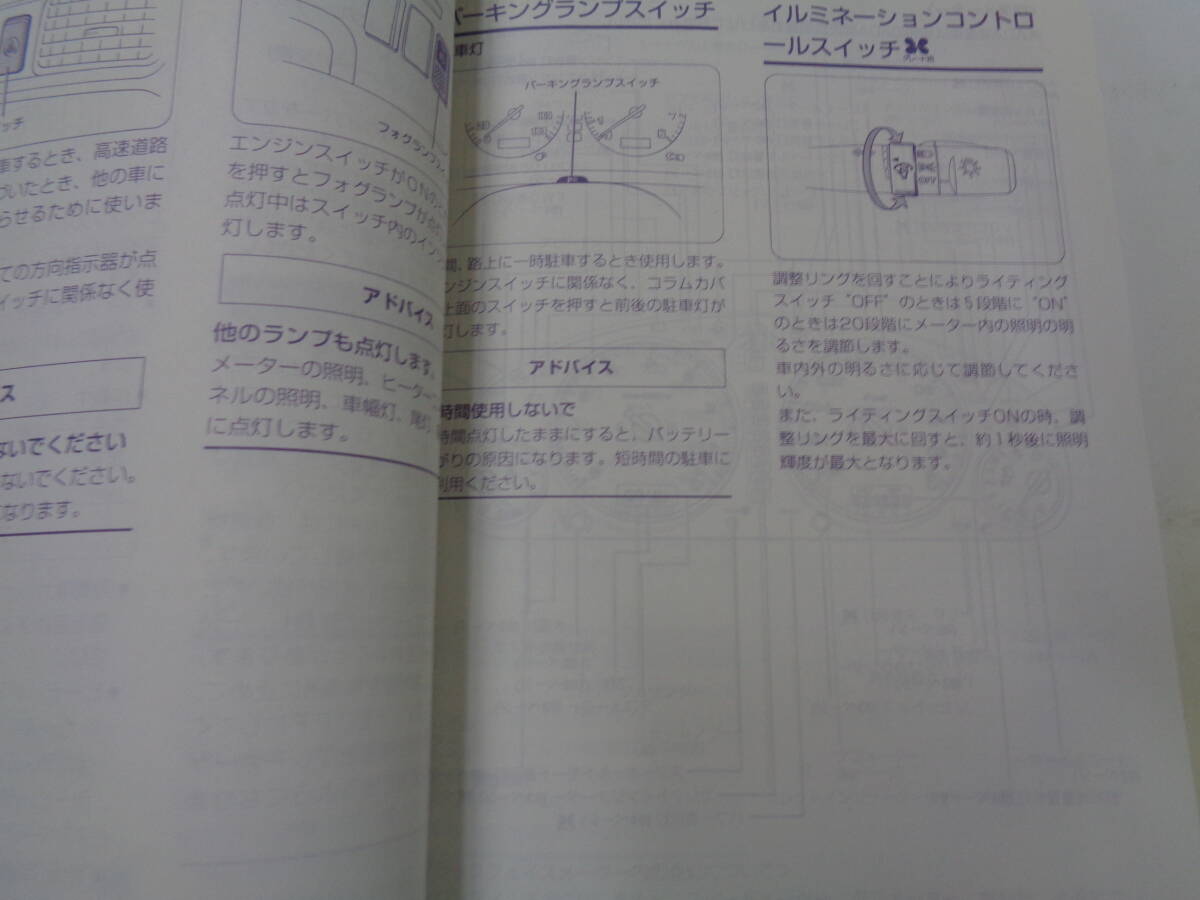 ッチ
車するとき、高速道路
づいたとき、他の車に
らせるために使いま
ての方向指示器が点
イッチに関係なく使
ス
ないでください
ないでください。
なります。
フォグランプスイ
エンジンスイッチがONの
を押すとフォグランプが点
点灯中はスイッチ内のイン
灯します。
アドバイス
他のランプも点灯します。
メーターの照明、ヒーター
ネルの照明、車幅灯、尾灯、
に点灯します。
パーキングランプスイッチ
車灯
パーキングランプスイッチ
間、路上に一時駐車するとき使用します。
ンジンスイッチに関係なく、コラムカバ
上面のスイッチを押すと前後の駐車灯が
灯します。
アドバイス
時間使用しないで
時間点灯したままにすると、バッテリー
がりの原因になります。短時間の駐車に
利用ください。
イルミネーションコントロ
ールスイッチ
グレード別
OFF
調整リングを回すことによりライティング
スイッチ“OFF”のときは5段階に“ON”
のときは20段階にメーター内の照明の明
るさを調節します。
車内外の明るさに応じて調節してくださ
い。
また、ライティングスイッチONの時、調
整リングを最大に回すと、約1秒後に照明
輝度が最大となります。